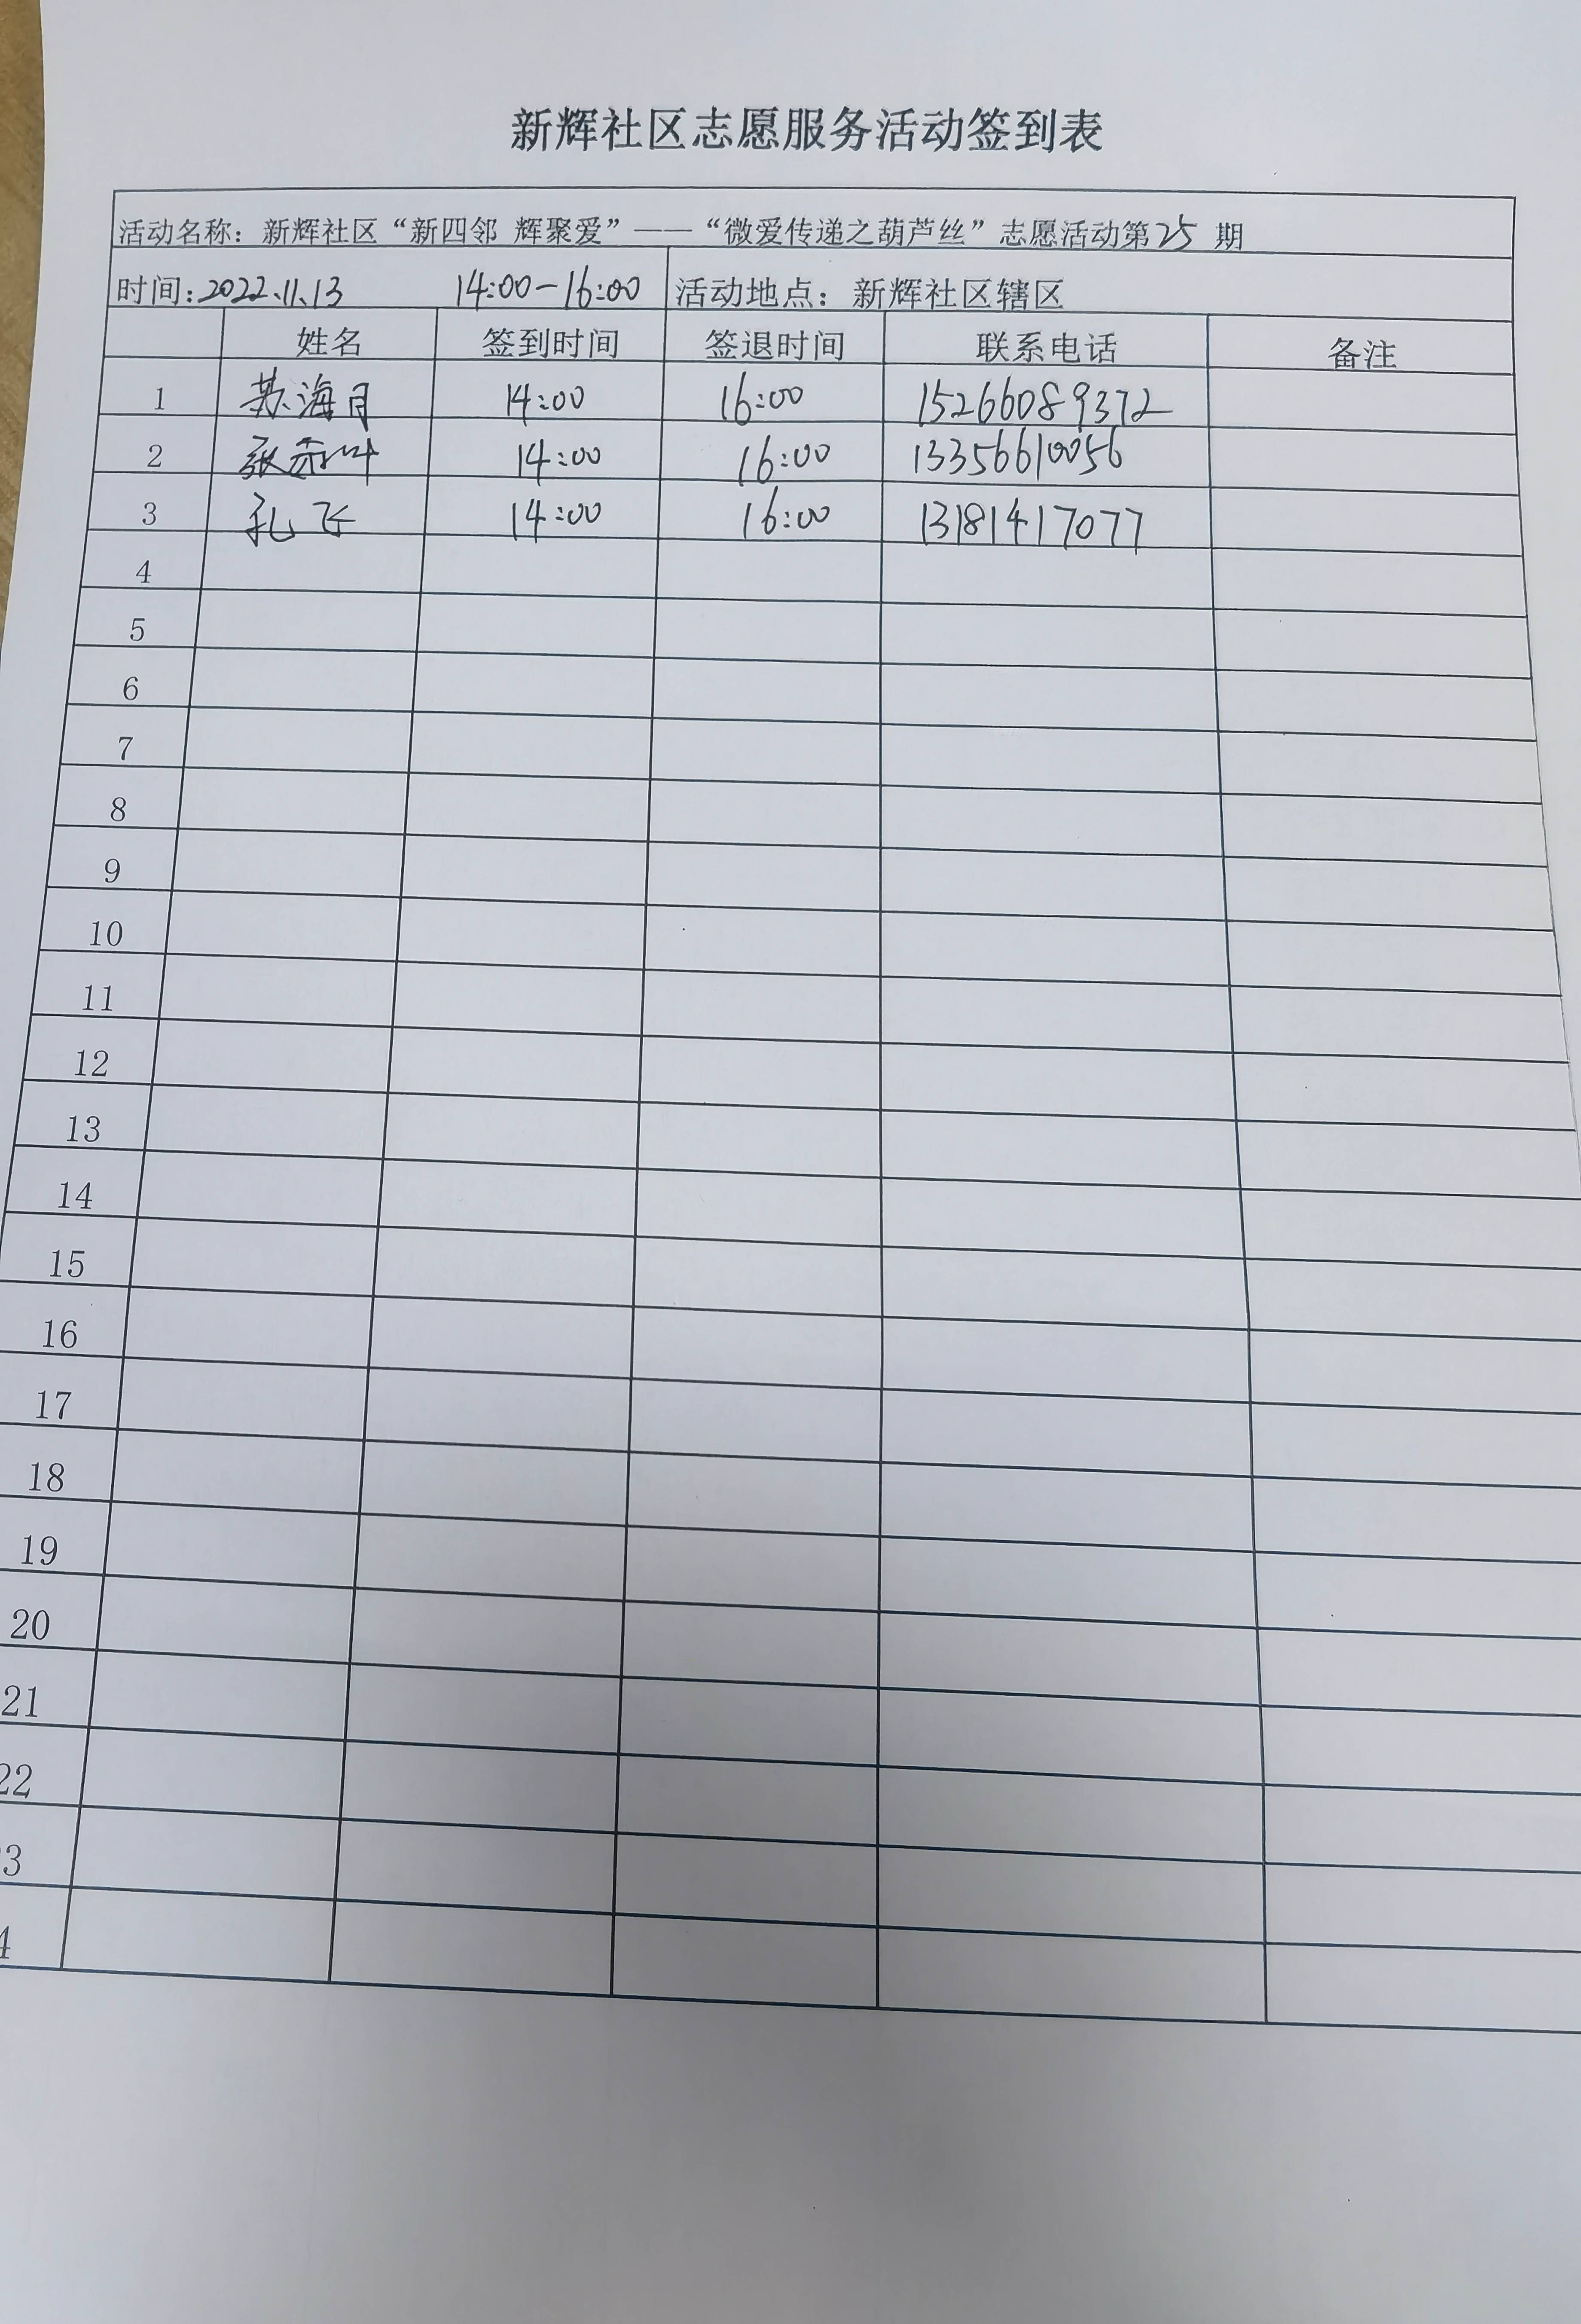 新辉社区志愿服务活动签到表
活动名称：新辉社区“新四邻 辉聚爱”——“微爱传递之葫芦丝”志愿活动第25 期
时间：2022.11.13 14:00-16:00 活动地点：新辉社区辖区
姓名 签到时间 签退时间 联系电话 备注
1 苏海月 14:00 16:00 15266089372
2 张 14:00 16:00 13356610056
3 孔飞 14:00 16:00 13181417077
4
5
6
7
8
9
10
11
12
13
14
15
16
17
18
19
20
21
22
3
4